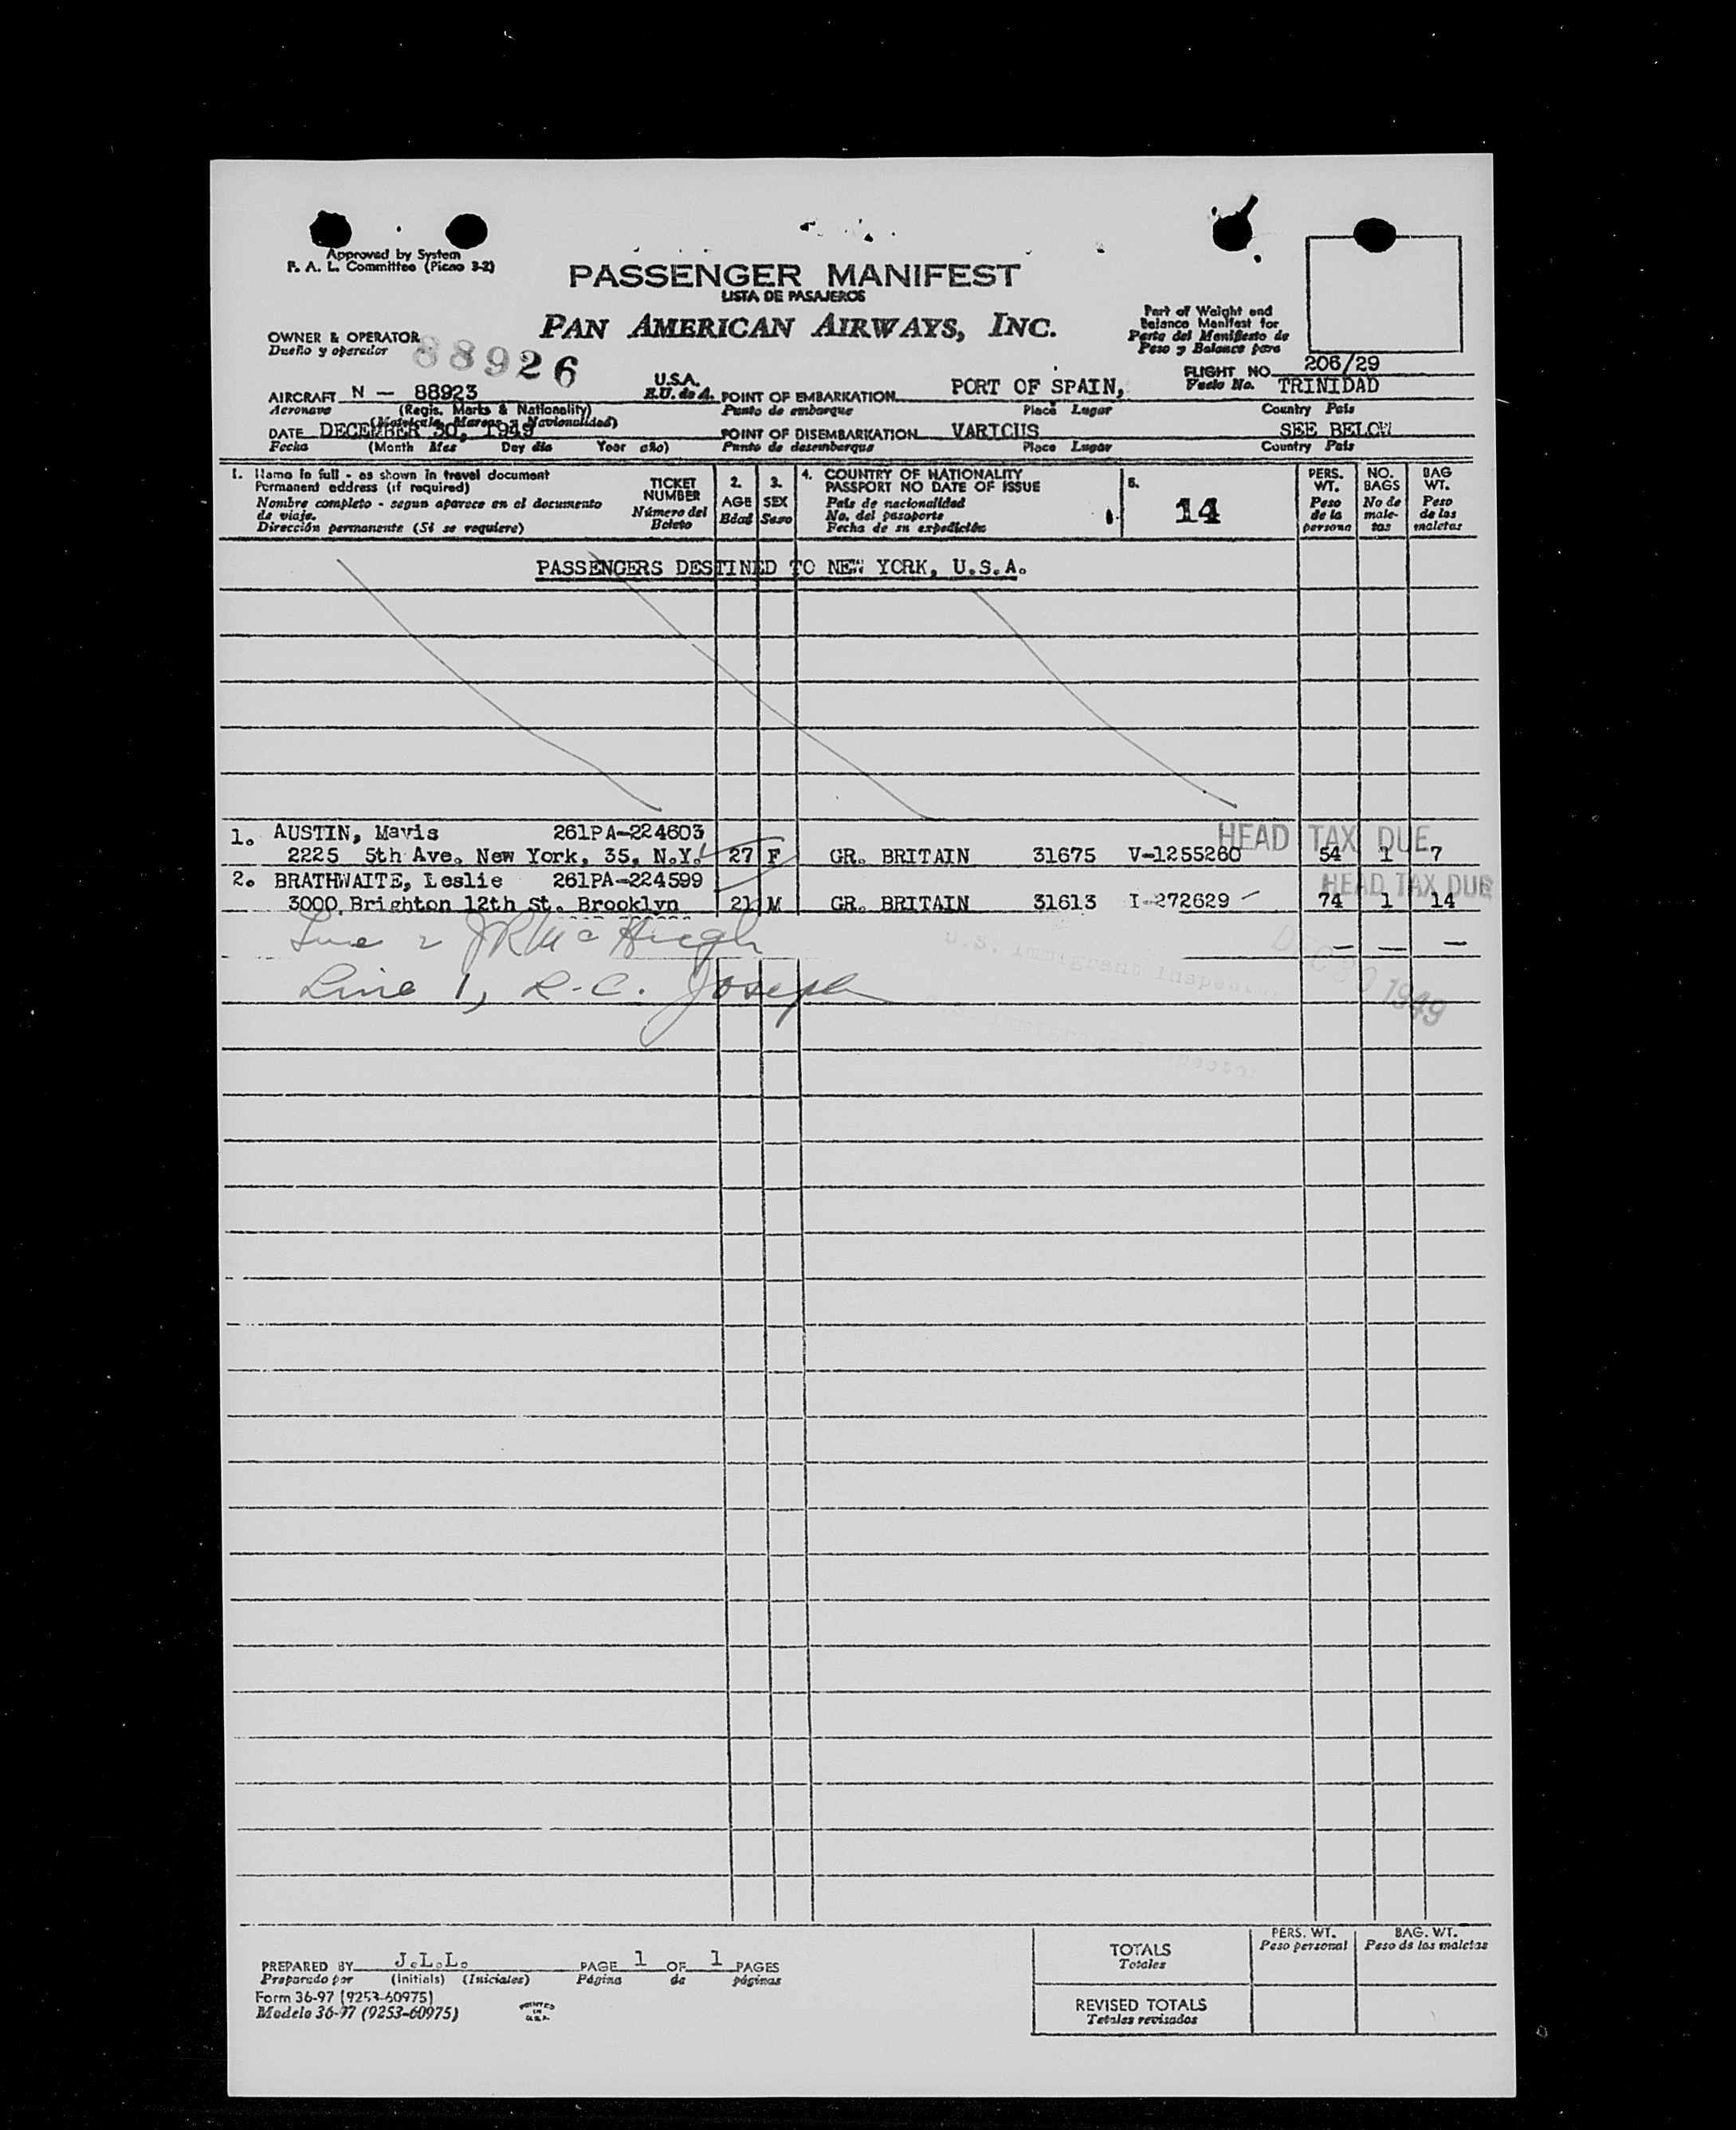 Approved by System
F. A. L. Committee (Picao 3-2)
PASSENGER MANIFEST
LISTA DE PASAJEROS
PAN AMERICAN AIRWAYS, INC.
Part of Weight and
Balance Manifest for
Parte del Manifiesto de
Peso y Balance para
OWNER & OPERATOR
Dueño y operador
88926
FLIGHT NO. 206/29
Vuelo No.
AIRCRAFT N - 88923 U.S.A. POINT OF EMBARKATION PORT OF SPAIN, TRINIDAD
Aeronave (Regis. Marks & Nationality) E.U. de A. Punto de embarque Place Lugar Country País
(Matrícula, Marcas y Nacionalidad)
DATE DECEMBER 30, 1949 POINT OF DISEMBARKATION VARIOUS SEE BELOW
Fecha (Month Mes Day día Year año) Punto de desembarque Place Lugar Country País
1. Name in full - as shown in travel document
Permanent address (if required)
Nombre completo - segun aparece en el documento
de viaje.
Dirección permanente (Si se requiere)
TICKET
NUMBER
Número del
Boleto
2.
AGE
Edad
3.
SEX
Sexo
4. COUNTRY OF NATIONALITY
PASSPORT NO DATE OF ISSUE
País de nacionalidad
No. del pasaporte
Fecha de su expedición
5.
14
PERS.
WT.
Peso
de la
persona
NO.
BAGS
No de
male-
tas
BAG
WT.
Peso
de las
maletas
PASSENGERS DESTINED TO NEW YORK, U.S.A.
1. AUSTIN, Mavis 261PA-224603 HEAD TAX DUE
2225 5th Ave. New York, 35, N.Y. 27 F GR. BRITAIN 31675 V-1255260 54 1 7
2. BRATHWAITE, Leslie 261PA-224599 HEAD TAX DUE
3000 Brighton 12th St. Brooklyn 21 M GR. BRITAIN 31613 I-272629 74 1 14
Line 2 JR McHugh
U.S. Immigrant Inspector
DEC 30 1949
Line 1, R.C. Joseph
U.S. Immigrant Inspector
PREPARED BY J.L.L. PAGE 1 OF 1 PAGES
Preparado por (Initials) (Iniciales) Página de páginas
Form 36-97 (9253-60975)
Modelo 36-97 (9253-60975)
PRINTED
IN
U.S.A.
TOTALS
Totales
PERS. WT.
Peso personal
BAG. WT.
Peso de las maletas
REVISED TOTALS
Totales revisados